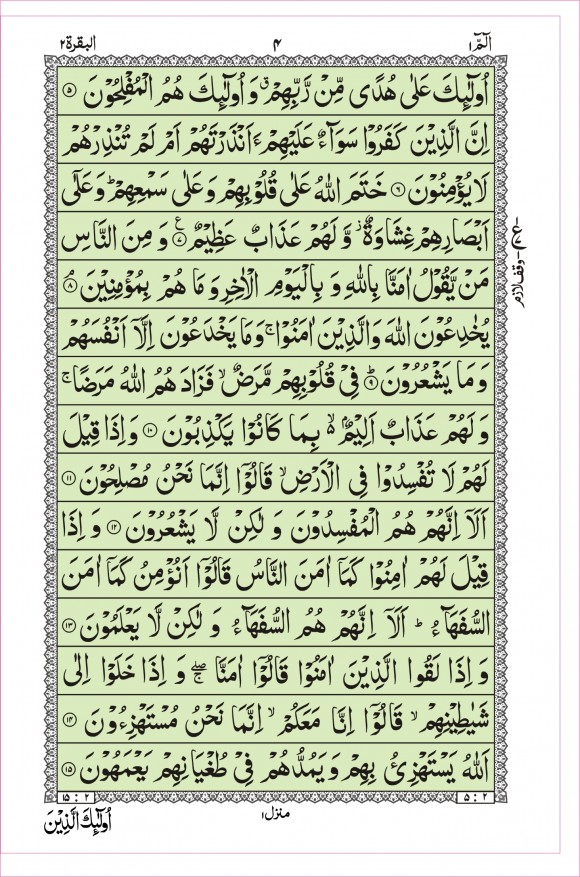 الٓمّٓ ۱ ۴ البقرة ۲
اُولٰٓئِكَ عَلٰى هُدًى مِّنْ رَّبِّهِمْ ۗ وَ اُولٰٓئِكَ هُمُ الْمُفْلِحُوْنَ ۵
اِنَّ الَّذِيْنَ كَفَرُوْا سَوَآءٌ عَلَيْهِمْ ءَاَنْذَرْتَهُمْ اَمْ لَمْ تُنْذِرْهُمْ
لَا يُؤْمِنُوْنَ ۶ خَتَمَ اللّٰهُ عَلٰى قُلُوْبِهِمْ وَعَلٰى سَمْعِهِمْ ؕ وَعَلٰٓى
اَبْصَارِهِمْ غِشَاوَةٌ ز وَّ لَهُمْ عَذَابٌ عَظِيْمٌ ۷ ع وَ مِنَ النَّاسِ
مَنْ يَّقُوْلُ اٰمَنَّا بِاللّٰهِ وَ بِالْيَوْمِ الْاٰخِرِ وَ مَا هُمْ بِمُؤْمِنِيْنَ ۘ ۸
يُخٰدِعُوْنَ اللّٰهَ وَالَّذِيْنَ اٰمَنُوْا ۚ وَمَا يَخْدَعُوْنَ اِلَّآ اَنْفُسَهُمْ
وَ مَا يَشْعُرُوْنَ ؕ ۹ فِيْ قُلُوْبِهِمْ مَّرَضٌ ۙ فَزَادَ هُمُ اللّٰهُ مَرَضًا ۚ
وَ لَهُمْ عَذَابٌ اَلِيْمٌۢ ۙ بِمَا كَانُوْا يَكْذِبُوْنَ ۱۰ وَ اِذَا قِيْلَ
لَهُمْ لَا تُفْسِدُوْا فِى الْاَرْضِ ۙ قَالُوْٓا اِنَّمَا نَحْنُ مُصْلِحُوْنَ ۱۱
اَلَآ اِنَّهُمْ هُمُ الْمُفْسِدُوْنَ وَ لٰكِنْ لَّا يَشْعُرُوْنَ ۱۲ وَ اِذَا
قِيْلَ لَهُمْ اٰمِنُوْا كَمَآ اٰمَنَ النَّاسُ قَالُوْٓا اَنُؤْمِنُ كَمَآ اٰمَنَ
السُّفَهَآءُ ؕ اَلَآ اِنَّهُمْ هُمُ السُّفَهَآءُ وَ لٰكِنْ لَّا يَعْلَمُوْنَ ۱۳
وَ اِذَا لَقُوا الَّذِيْنَ اٰمَنُوْا قَالُوْٓا اٰمَنَّا ۖۚ وَ اِذَا خَلَوْا اِلٰى
شَيٰطِيْنِهِمْ ۙ قَالُوْٓا اِنَّا مَعَكُمْ ۙ اِنَّمَا نَحْنُ مُسْتَهْزِءُوْنَ ۱۴
اَللّٰهُ يَسْتَهْزِئُ بِهِمْ وَ يَمُدُّهُمْ فِيْ طُغْيَانِهِمْ يَعْمَهُوْنَ ۱۵
وقف لازم
۲ : ۵ منزل ۱ ۲ : ۱۵
اُولٰٓئِكَ الَّذِيْنَ